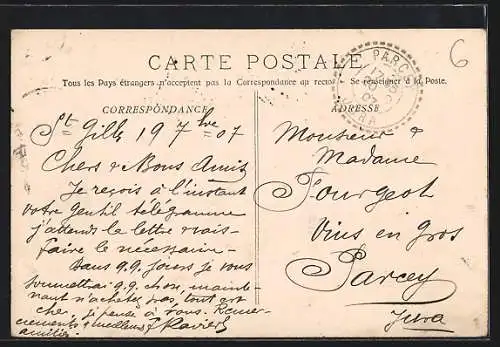 CARTE POSTALE
Tous les Pays étrangers n'acceptent pas la Correspondance au recto Se renseigner à la Poste.
CORRESPONDANCE
St Gille 19 7bre 07
Chers & Bons Amis
Je reçois à l'instant
votre gentil télégramme
j'attends la lettre & vais
faire le nécessaire -
Dans q.q. jours je vous
soumettrai q.q. chose, mainte-
nant n'achetez pas, tout est
cher, je pense à vous. Remer-
ciements & meilleures
amitiés.
ADRESSE
Monsieur &
Madame
Fourgeot
Vins en gros
Parcey
Jura
PARCEY
JURA
6